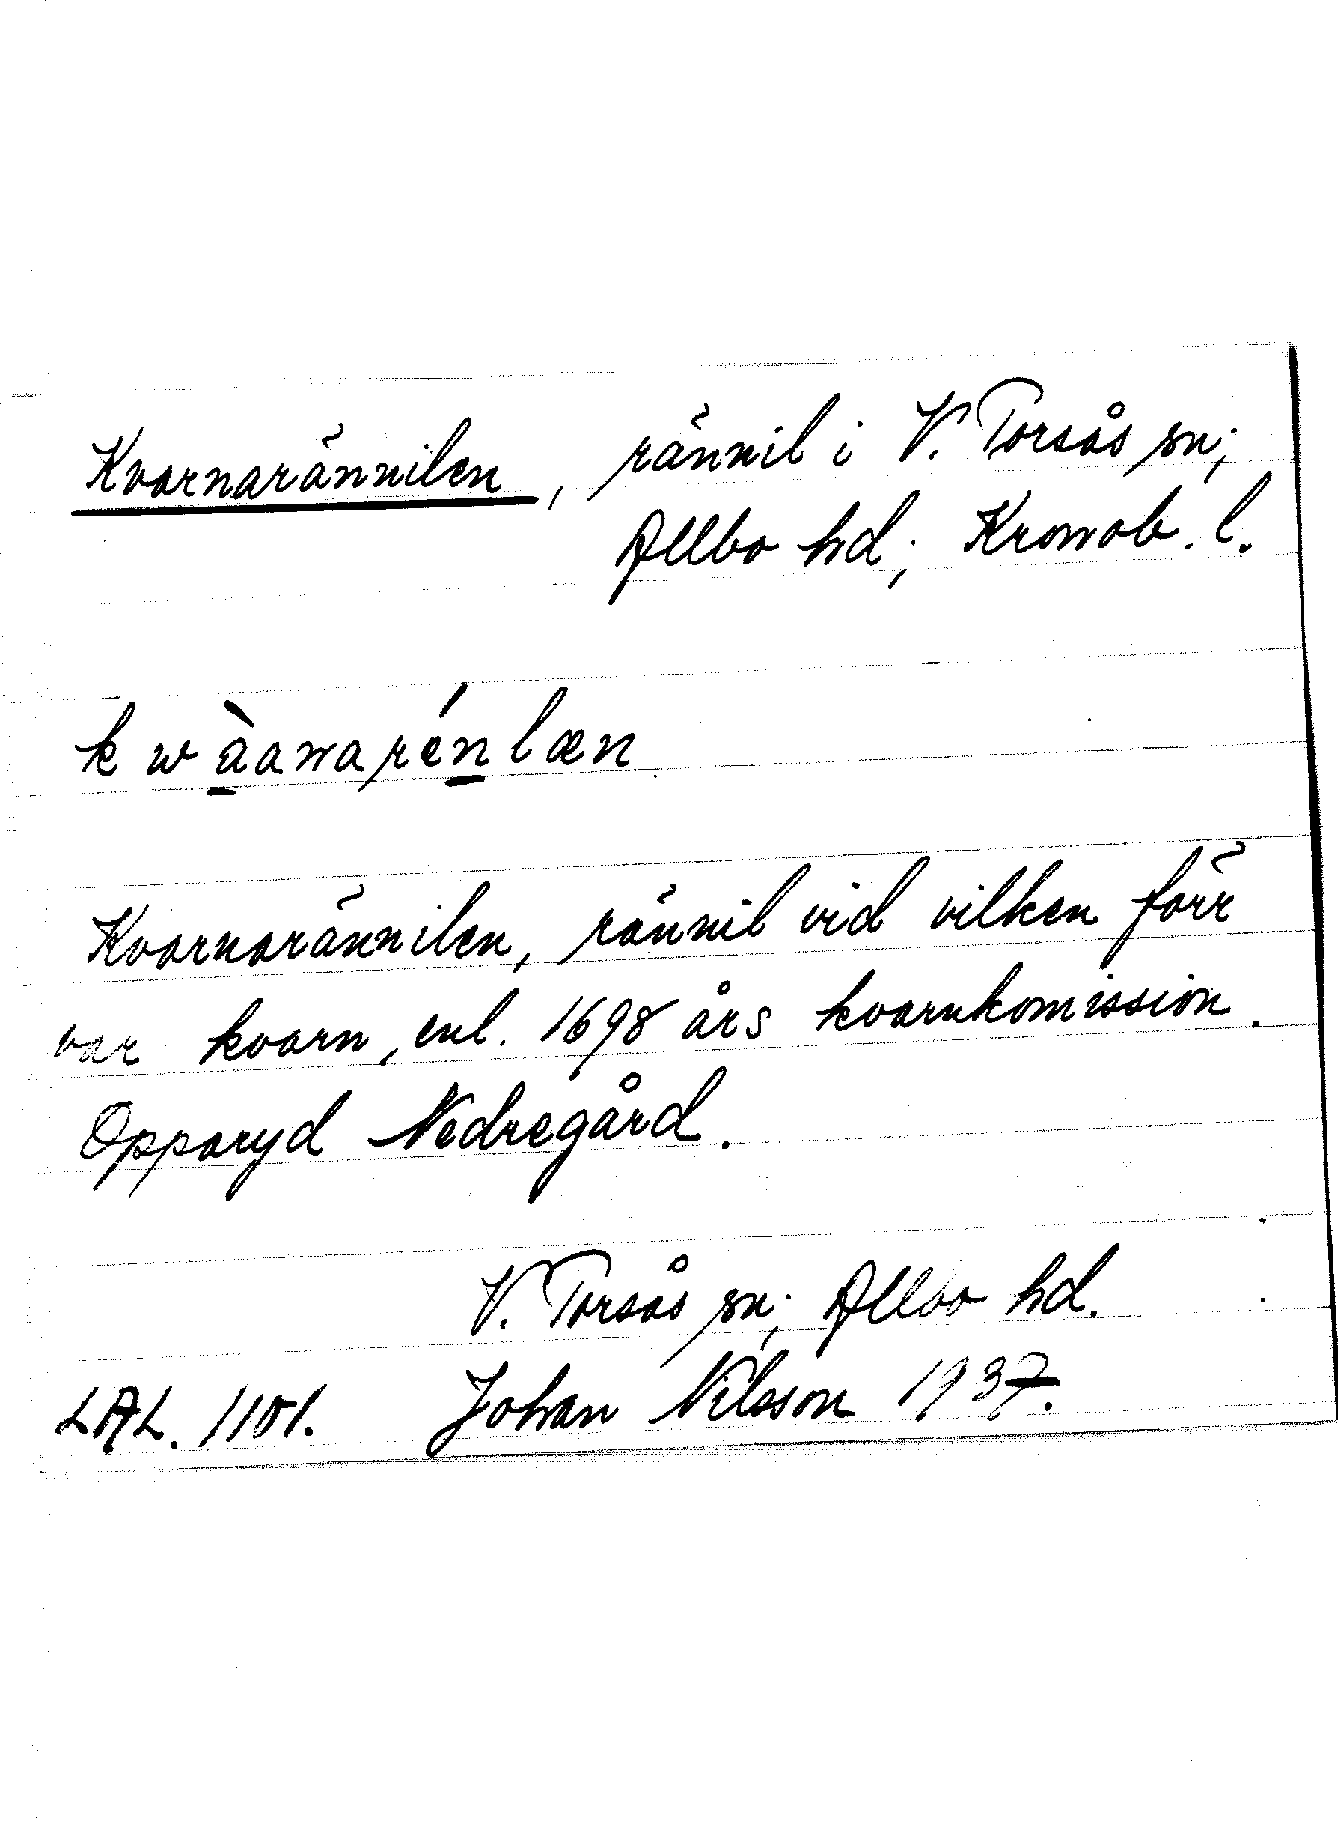 Kvarnarännilen, rännil i V. Torsås sn;
Allbo hd; Kronob. l.
k w àanarénlæn
Kvarnarännilen, rännil vid vilken förr
var kvarn, enl. 1698 års kvarnkomission.
Opparyd Nedregård.
V. Torsås sn; Allbo hd.
LAL. 1101. Johan Nilsson 1937.